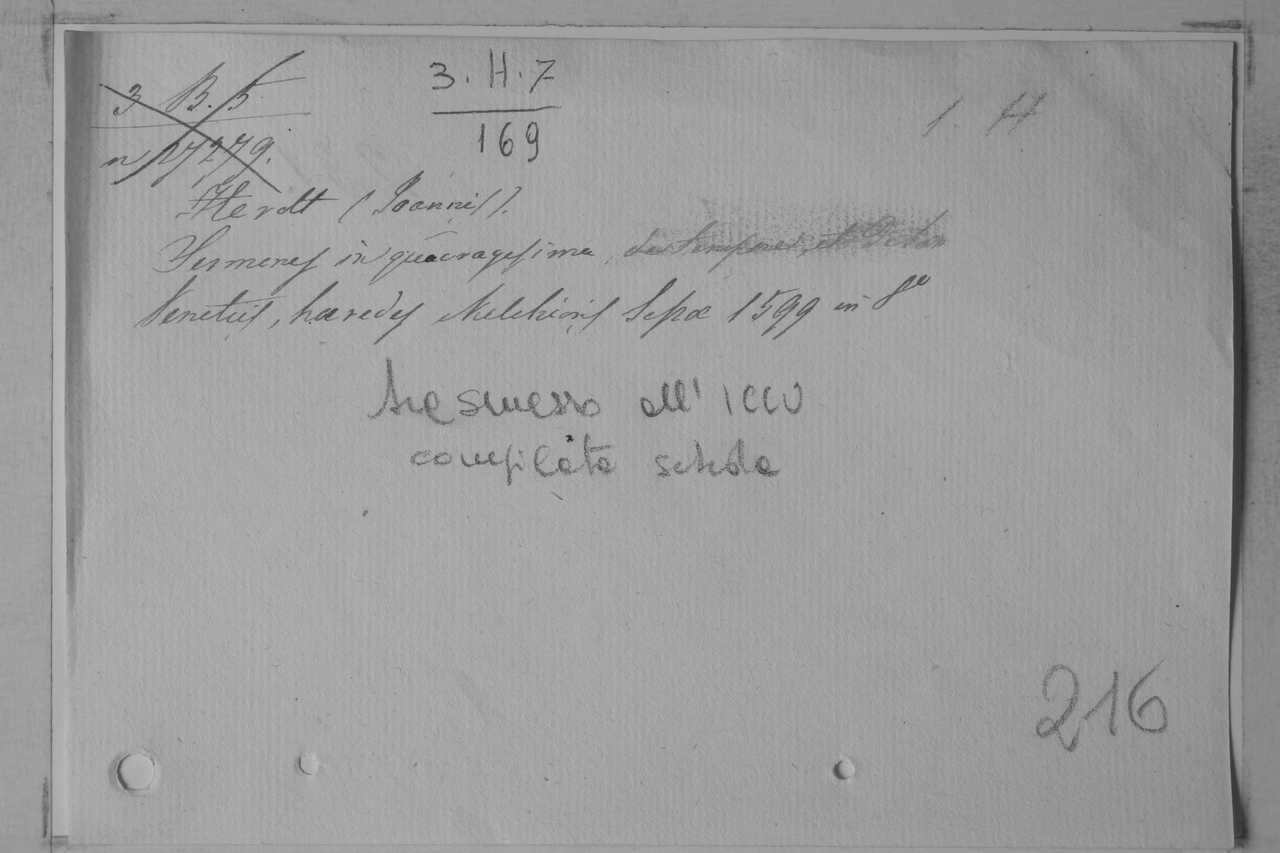 3 B. 5
n 17279.
3. H. 7
169
1. H
Herolt (Joannis).
Sermones in quadragesima, de Tempore, et
Venetiis, haeredes Melchioris Sessae 1599 in 8°
trasmesso all' ICCU
compilata scheda
216